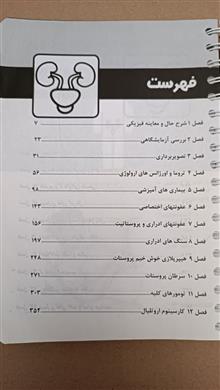 فهرست
فصل ۱ شرح حال و معاینه فیزیکی ۷
فصل ۲ بررسی آزمایشگاهی ۲۳
فصل ۳ تصویربرداری ۳۱
فصل ۴ تروما و اورژانس های ارولوژی ۵۶
فصل ۵ بیماری های آمیزشی ۹۸
فصل ۶ عفونتهای اختصاصی ۱۴۳
فصل ۷ عفونتهای ادراری و پروستاتیت ۱۵۶
فصل ۸ سنگ های ادراری ۱۹۷
فصل ۹ هیپرپلازی خوش خیم پروستات ۲۴۸
فصل ۱۰ سرطان پروستات ۲۷۱
فصل ۱۱ تومورهای کلیه ۳۰۳
فصل ۱۲ کارسینوم اروتلیال ۳۵۴